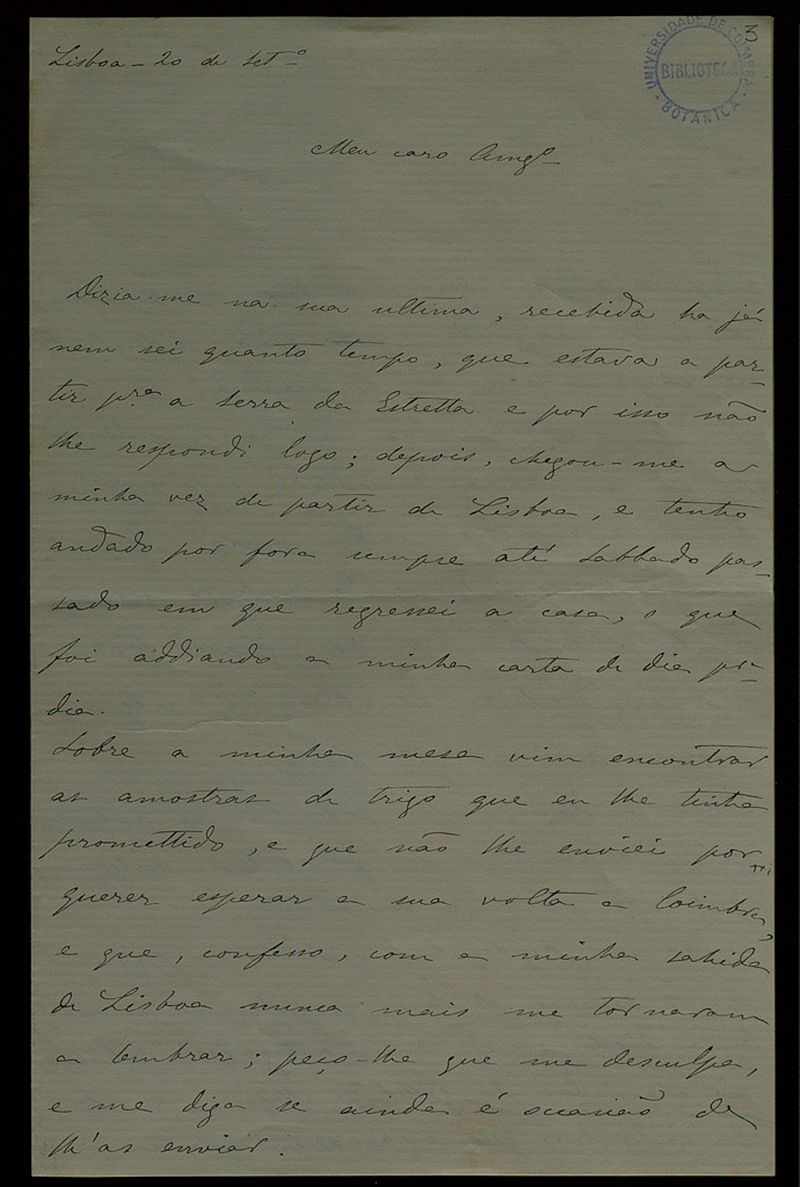 3
UNIVERSIDADE DE COIMBRA
BIBLIOTECA
BOTÂNICA
Lisboa - 20 de Setº
Meu caro Amgº
Dizia-me na sua ultima, recebida ha já
nem sei quanto tempo, que estava a par-
tir prª a Serra da Estrella e por isso não
lhe respondi logo; depois, chegou-me a
minha vez de partir de Lisboa, e tenho
andado por fora sempre até Sabbado pas-
sado em que regressei a casa, o que
foi addiando a minha carta de dia pª
dia.
Sobre a minha mesa vim encontrar
as amostras de trigo que eu lhe tinha
promettido, e que não lhe enviei por
querer esperar a sua volta a Coimbra,
e que, confesso, com a minha sahida
de Lisboa nunca mais me tornaram
a lembrar; peço-lhe que me desculpe,
e me diga se ainda é occasião de
lh'as enviar.